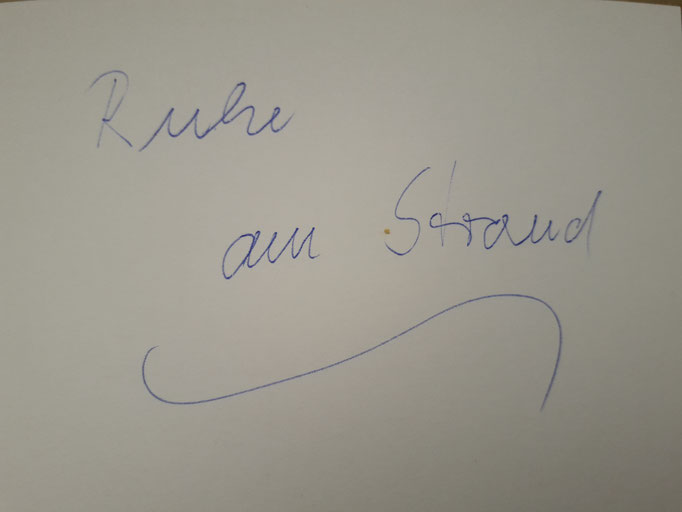 Ruhe
am Strand